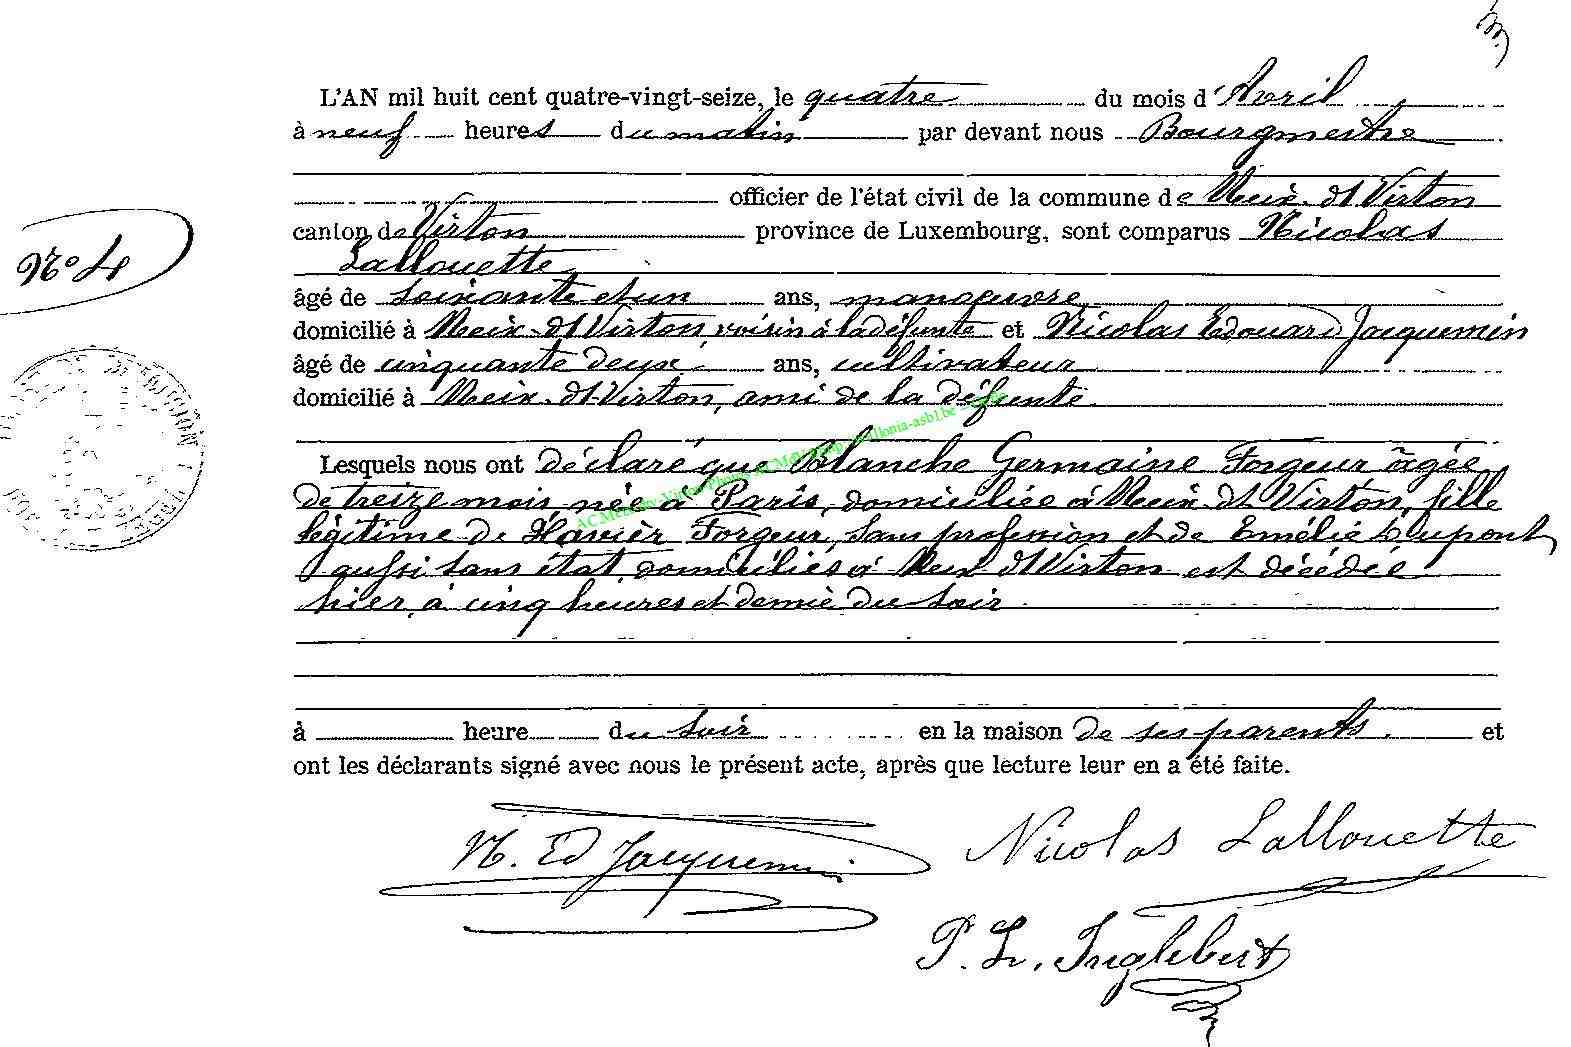 L'AN mil huit cent quatre-vingt-seize, le quatre du mois d'Avril
à neuf heures du matin par devant nous Bourgmestre
officier de l'état civil de la commune de Meix-dt Virton
canton de Virton province de Luxembourg, sont comparus Nicolas
Lallouette
N° 4
âgé de soixante et un ans, manoeuvre
domicilié à Meix-dt Virton, voisin à la défunte et Nicolas Edouard Jacquemin
âgé de cinquante deux ans, cultivateur
domicilié à Meix-dt-Virton, ami de la défunte.
Lesquels nous ont déclaré que Blanche Germaine Forgeur âgée
de treize mois, née à Paris, domiciliée à Meix dt Virton, fille
légitime de Xavièr Forgeur, sans profession et de Emélie Dupont
aussi sans état, domiciliés à Meix dt Virton est décédée
hier, à cinq heures et demie du soir
à heure du soir en la maison de ses parents. et
ont les déclarants signé avec nous le présent acte, après que lecture leur en a été faite.
N. Ed Jacquemin Nicolas Lallouette
P. L. Inglebert